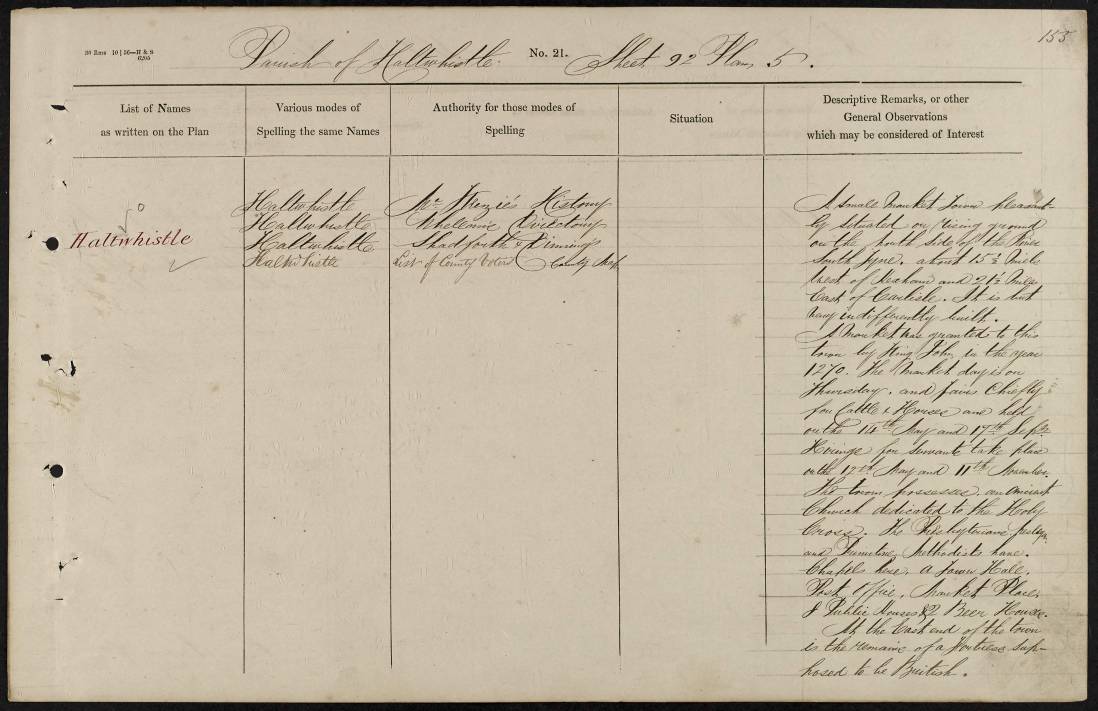 155
Parish of Haltwhistle. No. 21. Sheet 92 Plan 5.
List of Names
as written on the Plan
Various modes of
Spelling the same Names
Authority for those modes of
Spelling
Situation
Descriptive Remarks, or other
General Observations
which may be considered of Interest
Haltwhistle
Haltwhistle
Haltwhistle
Haltwhistle
Haltwhistle
History
Whellan's Directory
Shadforth & Dinning
List of County Voters County Map
A Small Market Town pleasant-
ly situated on rising ground
on the North Side of the River
South Tyne. about 15½ Miles
West of Hexham and 21½ Miles
East of Carlisle. It is but
very indifferently built.
A Market was granted to this
town by King John in the year
1270. The Market day is on
Thursday. and fairs Chiefly
for Cattle & Horses are held
on the 14th May and 17th Sept.
Hirings for Servants take place
on the 12th May and 11th November.
The town possesses. an Ancient
Church dedicated to the Holy
Cross. The Presbyterians
and Primitive Methodists have.
Chapels here, a Town Hall.
Post Office, Market Place,
8 Public Houses & 2 Beer Houses.
At the East end of the town
is the remains of a fortress sup-
posed to be British.